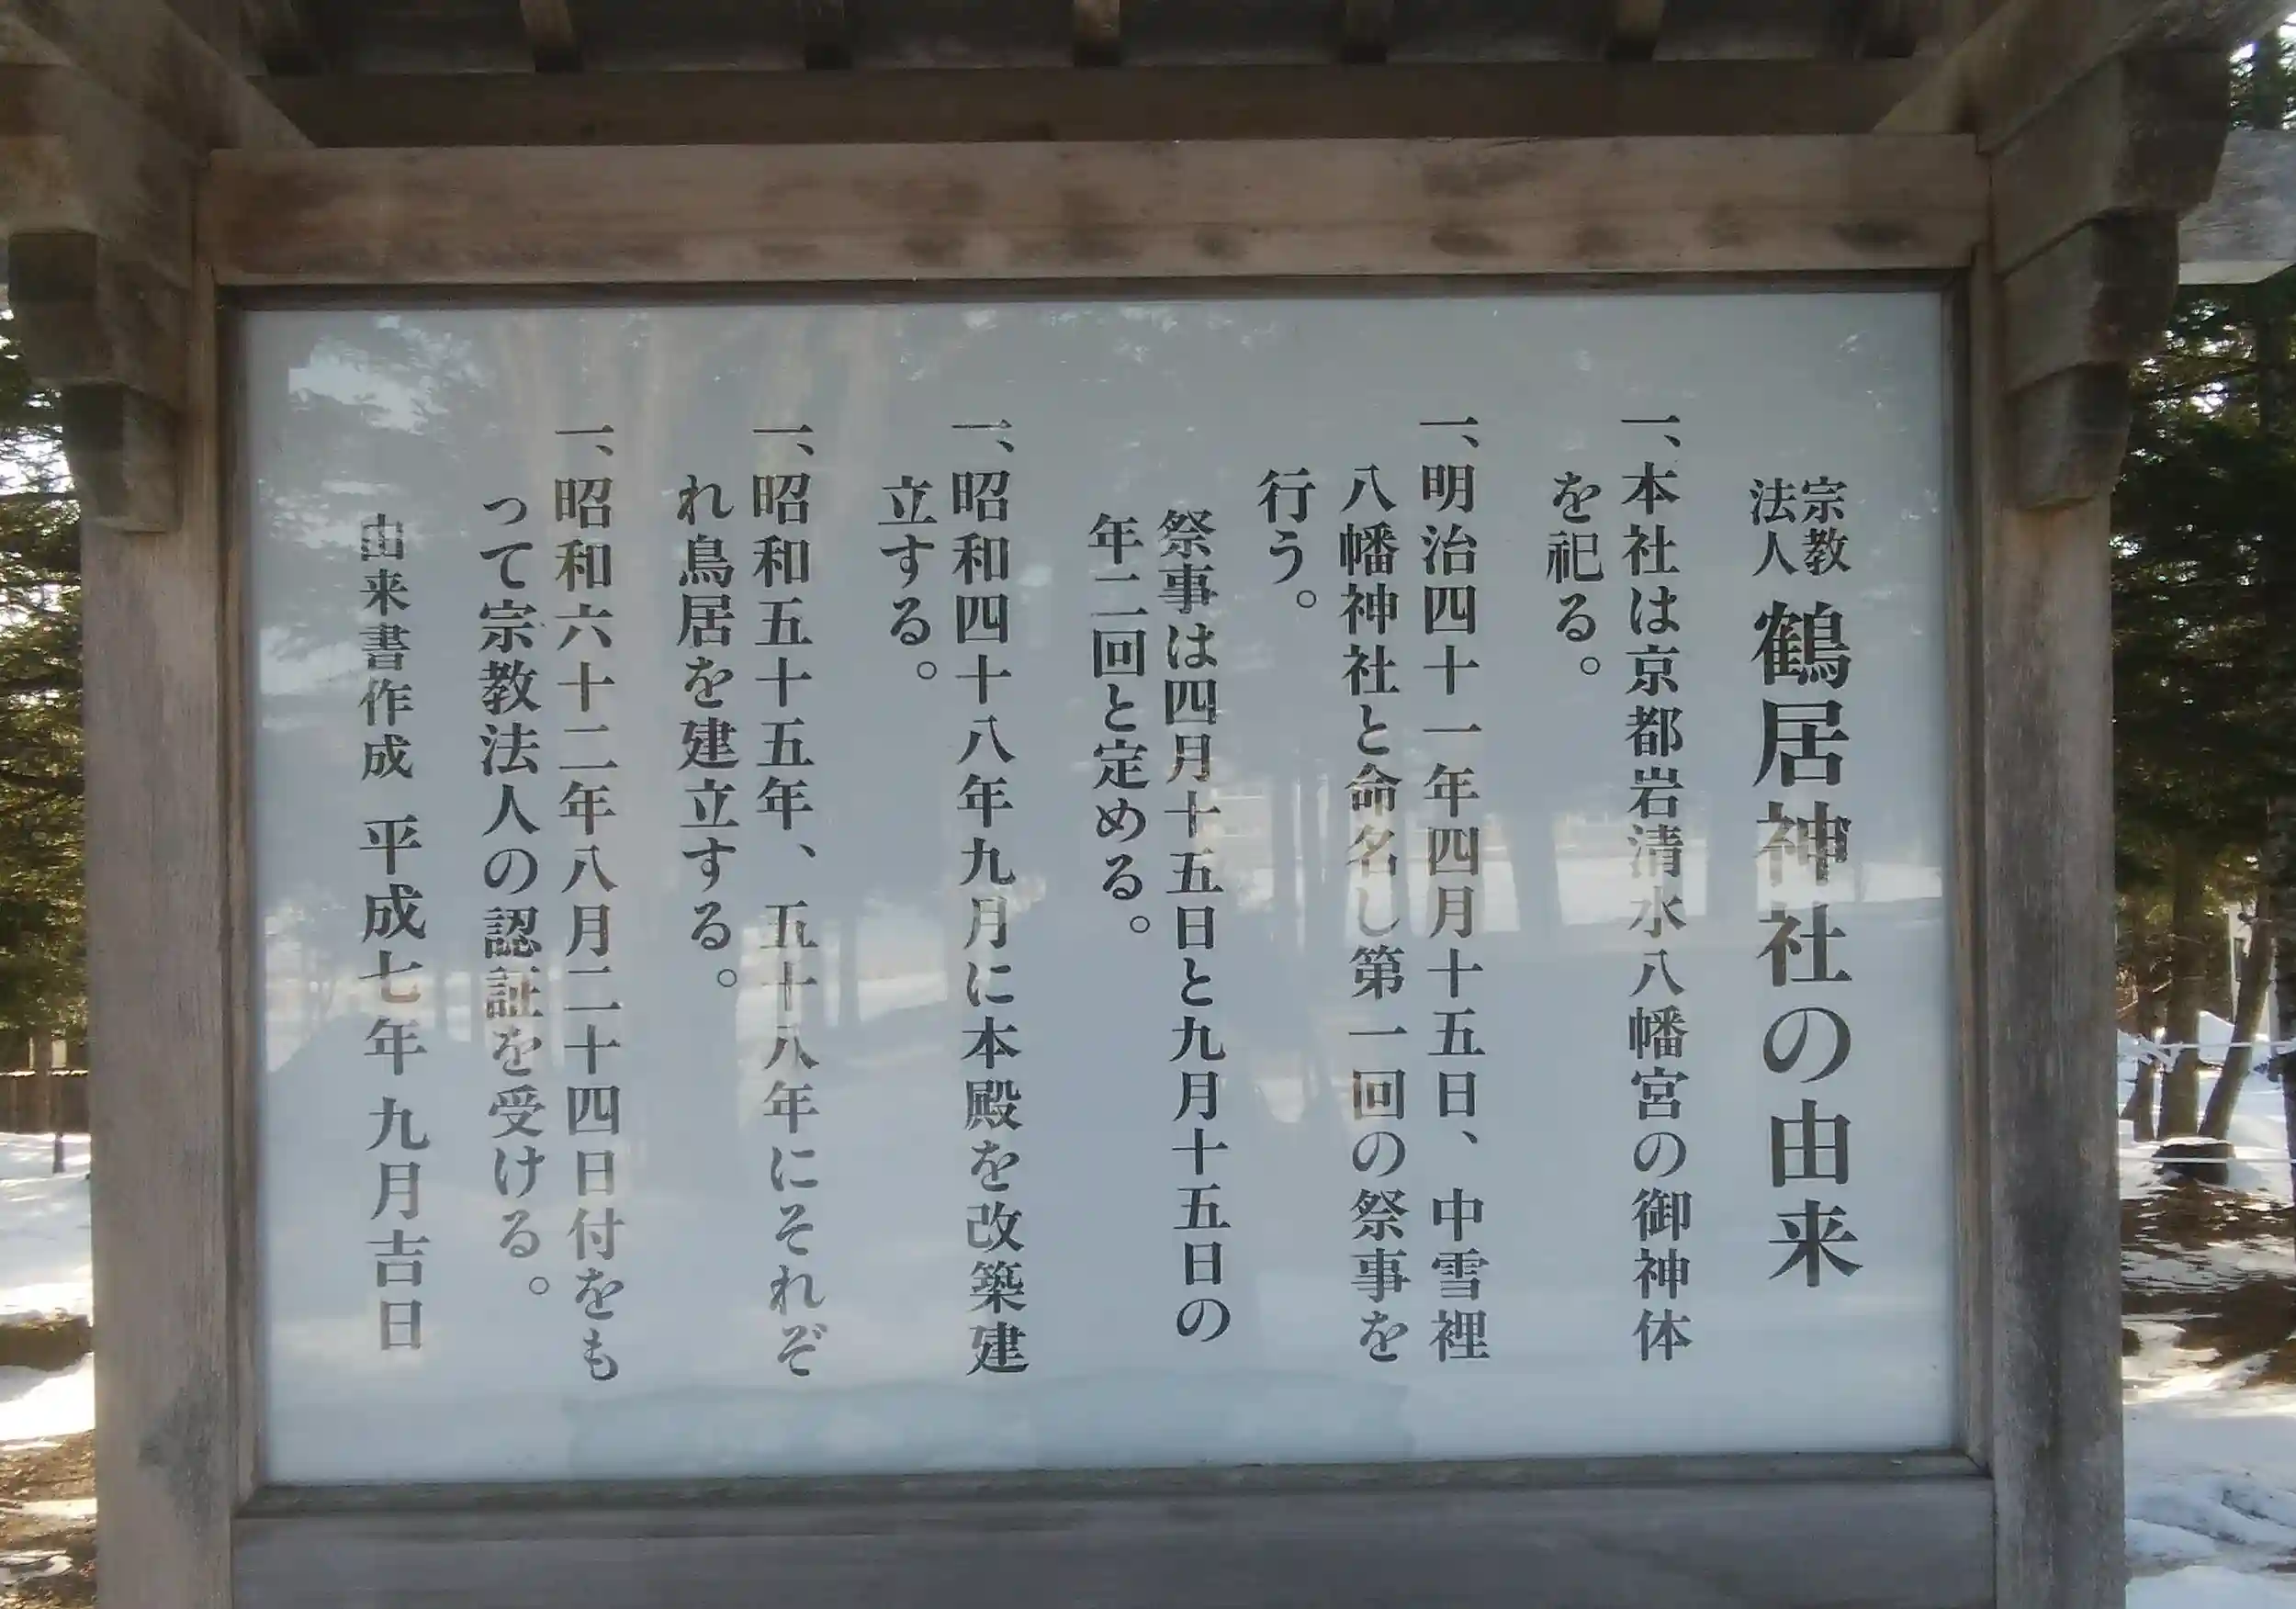 宗教法人 鶴居神社の由来
一、本社は京都岩清水八幡宮の御神体
を祀る。
一、明治四十一年四月十五日、中雪裡
八幡神社と命名し第一回の祭事を
行う。
祭事は四月十五日と九月十五日の
年二回と定める。
一、昭和四十八年九月に本殿を改築建
立する。
一、昭和五十五年、五十八年にそれぞ
れ鳥居を建立する。
一、昭和六十二年八月二十四日付をも
って宗教法人の認証を受ける。
由来書作成 平成七年九月吉日